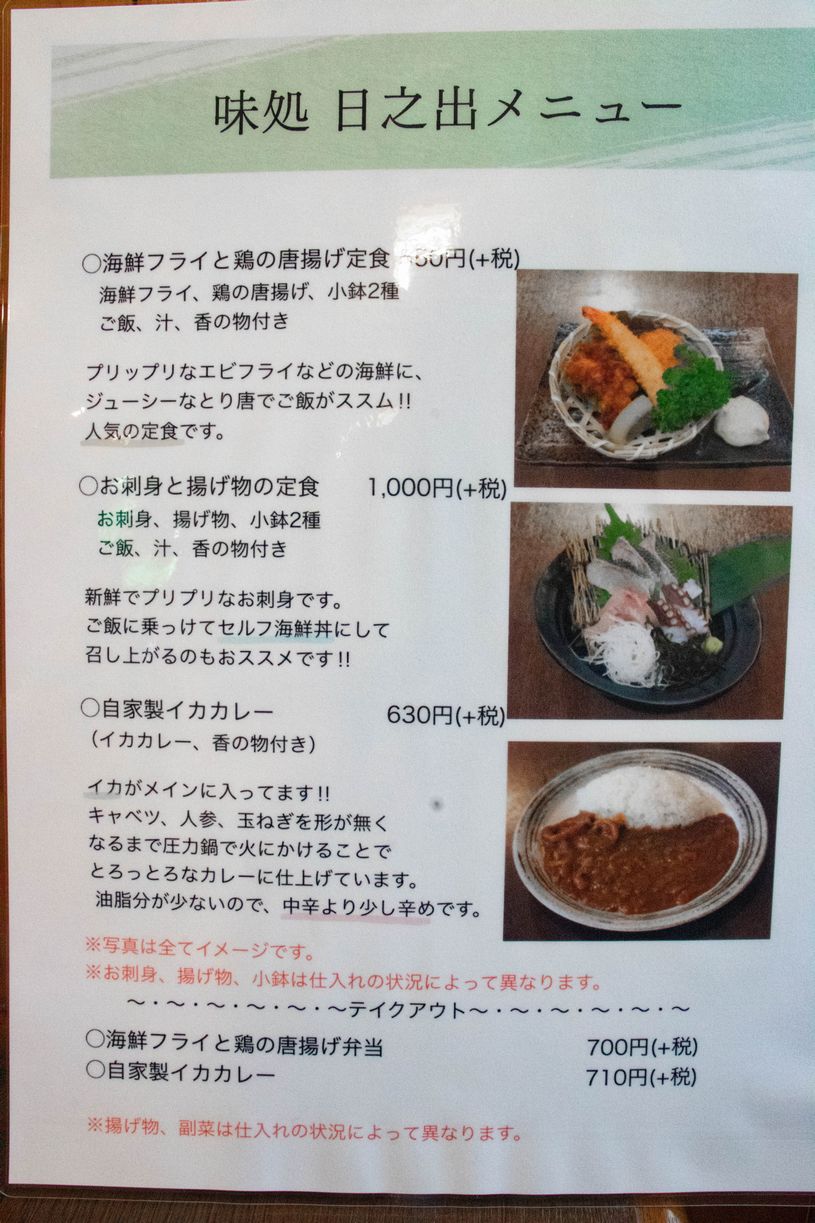 味処 日之出メニュー
○海鮮フライと鶏の唐揚げ定食 50円(+税)
海鮮フライ、鶏の唐揚げ、小鉢2種
ご飯、汁、香の物付き
プリップリなエビフライなどの海鮮に、
ジューシーなとり唐でご飯がススム!!
人気の定食です。
○お刺身と揚げ物の定食 1,000円(+税)
お刺身、揚げ物、小鉢2種
ご飯、汁、香の物付き
新鮮でプリプリなお刺身です。
ご飯に乗っけてセルフ海鮮丼にして
召し上がるのもおススメです!!
○自家製イカカレー 630円(+税)
（イカカレー、香の物付き）
イカがメインに入ってます!!
キャベツ、人参、玉ねぎを形が無く
なるまで圧力鍋で火にかけることで
とろっとろなカレーに仕上げています。
油脂分が少ないので、中辛より少し辛めです。
※写真は全てイメージです。
※お刺身、揚げ物、小鉢は仕入れの状況によって異なります。
～・～・～・～・～・～テイクアウト～・～・～・～・～・～
○海鮮フライと鶏の唐揚げ弁当 700円(+税)
○自家製イカカレー 710円(+税)
※揚げ物、副菜は仕入れの状況によって異なります。